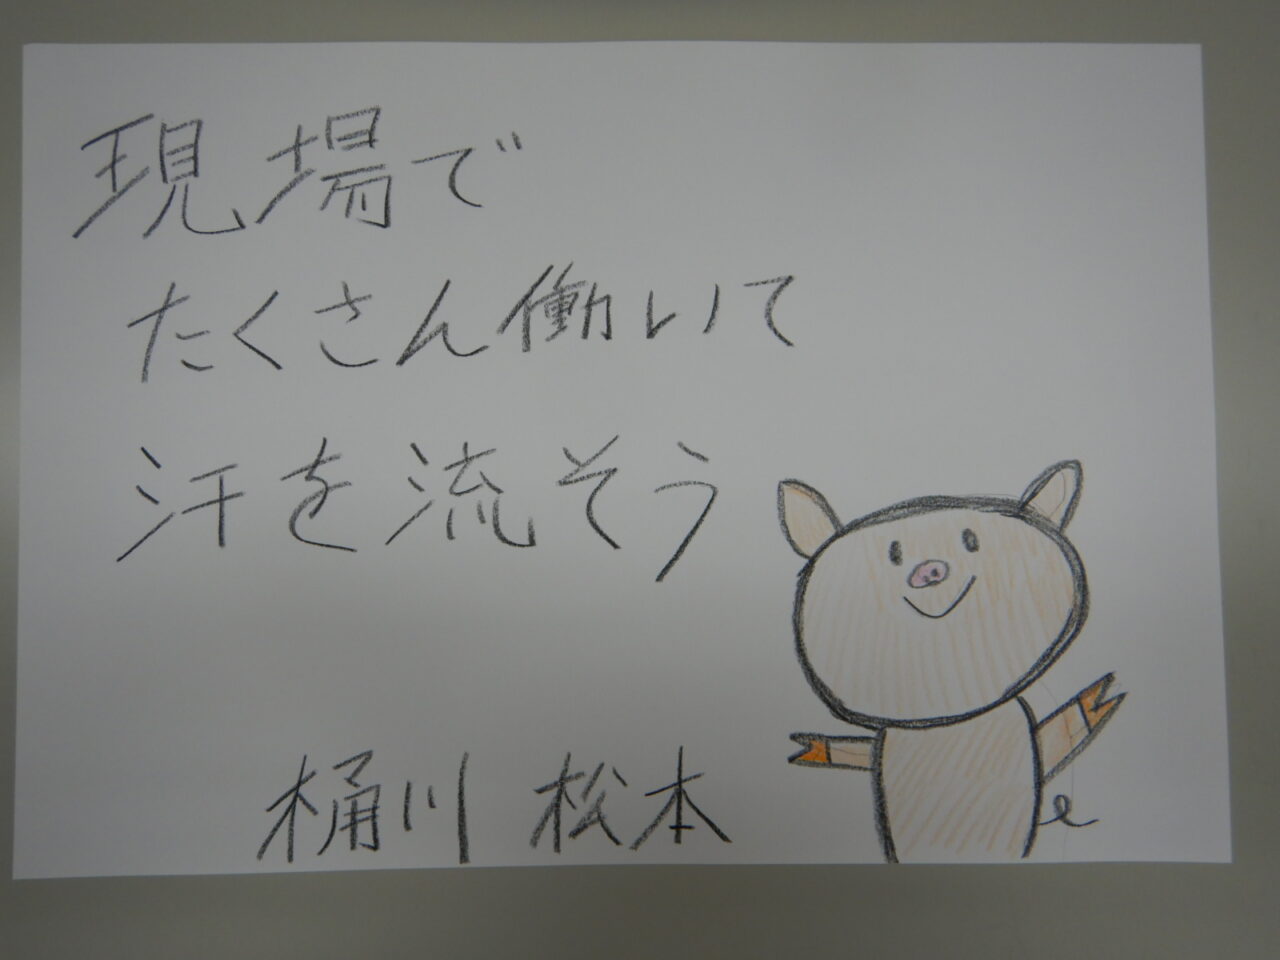 現場で
たくさん働いて
汗を流そう
桶川 松本